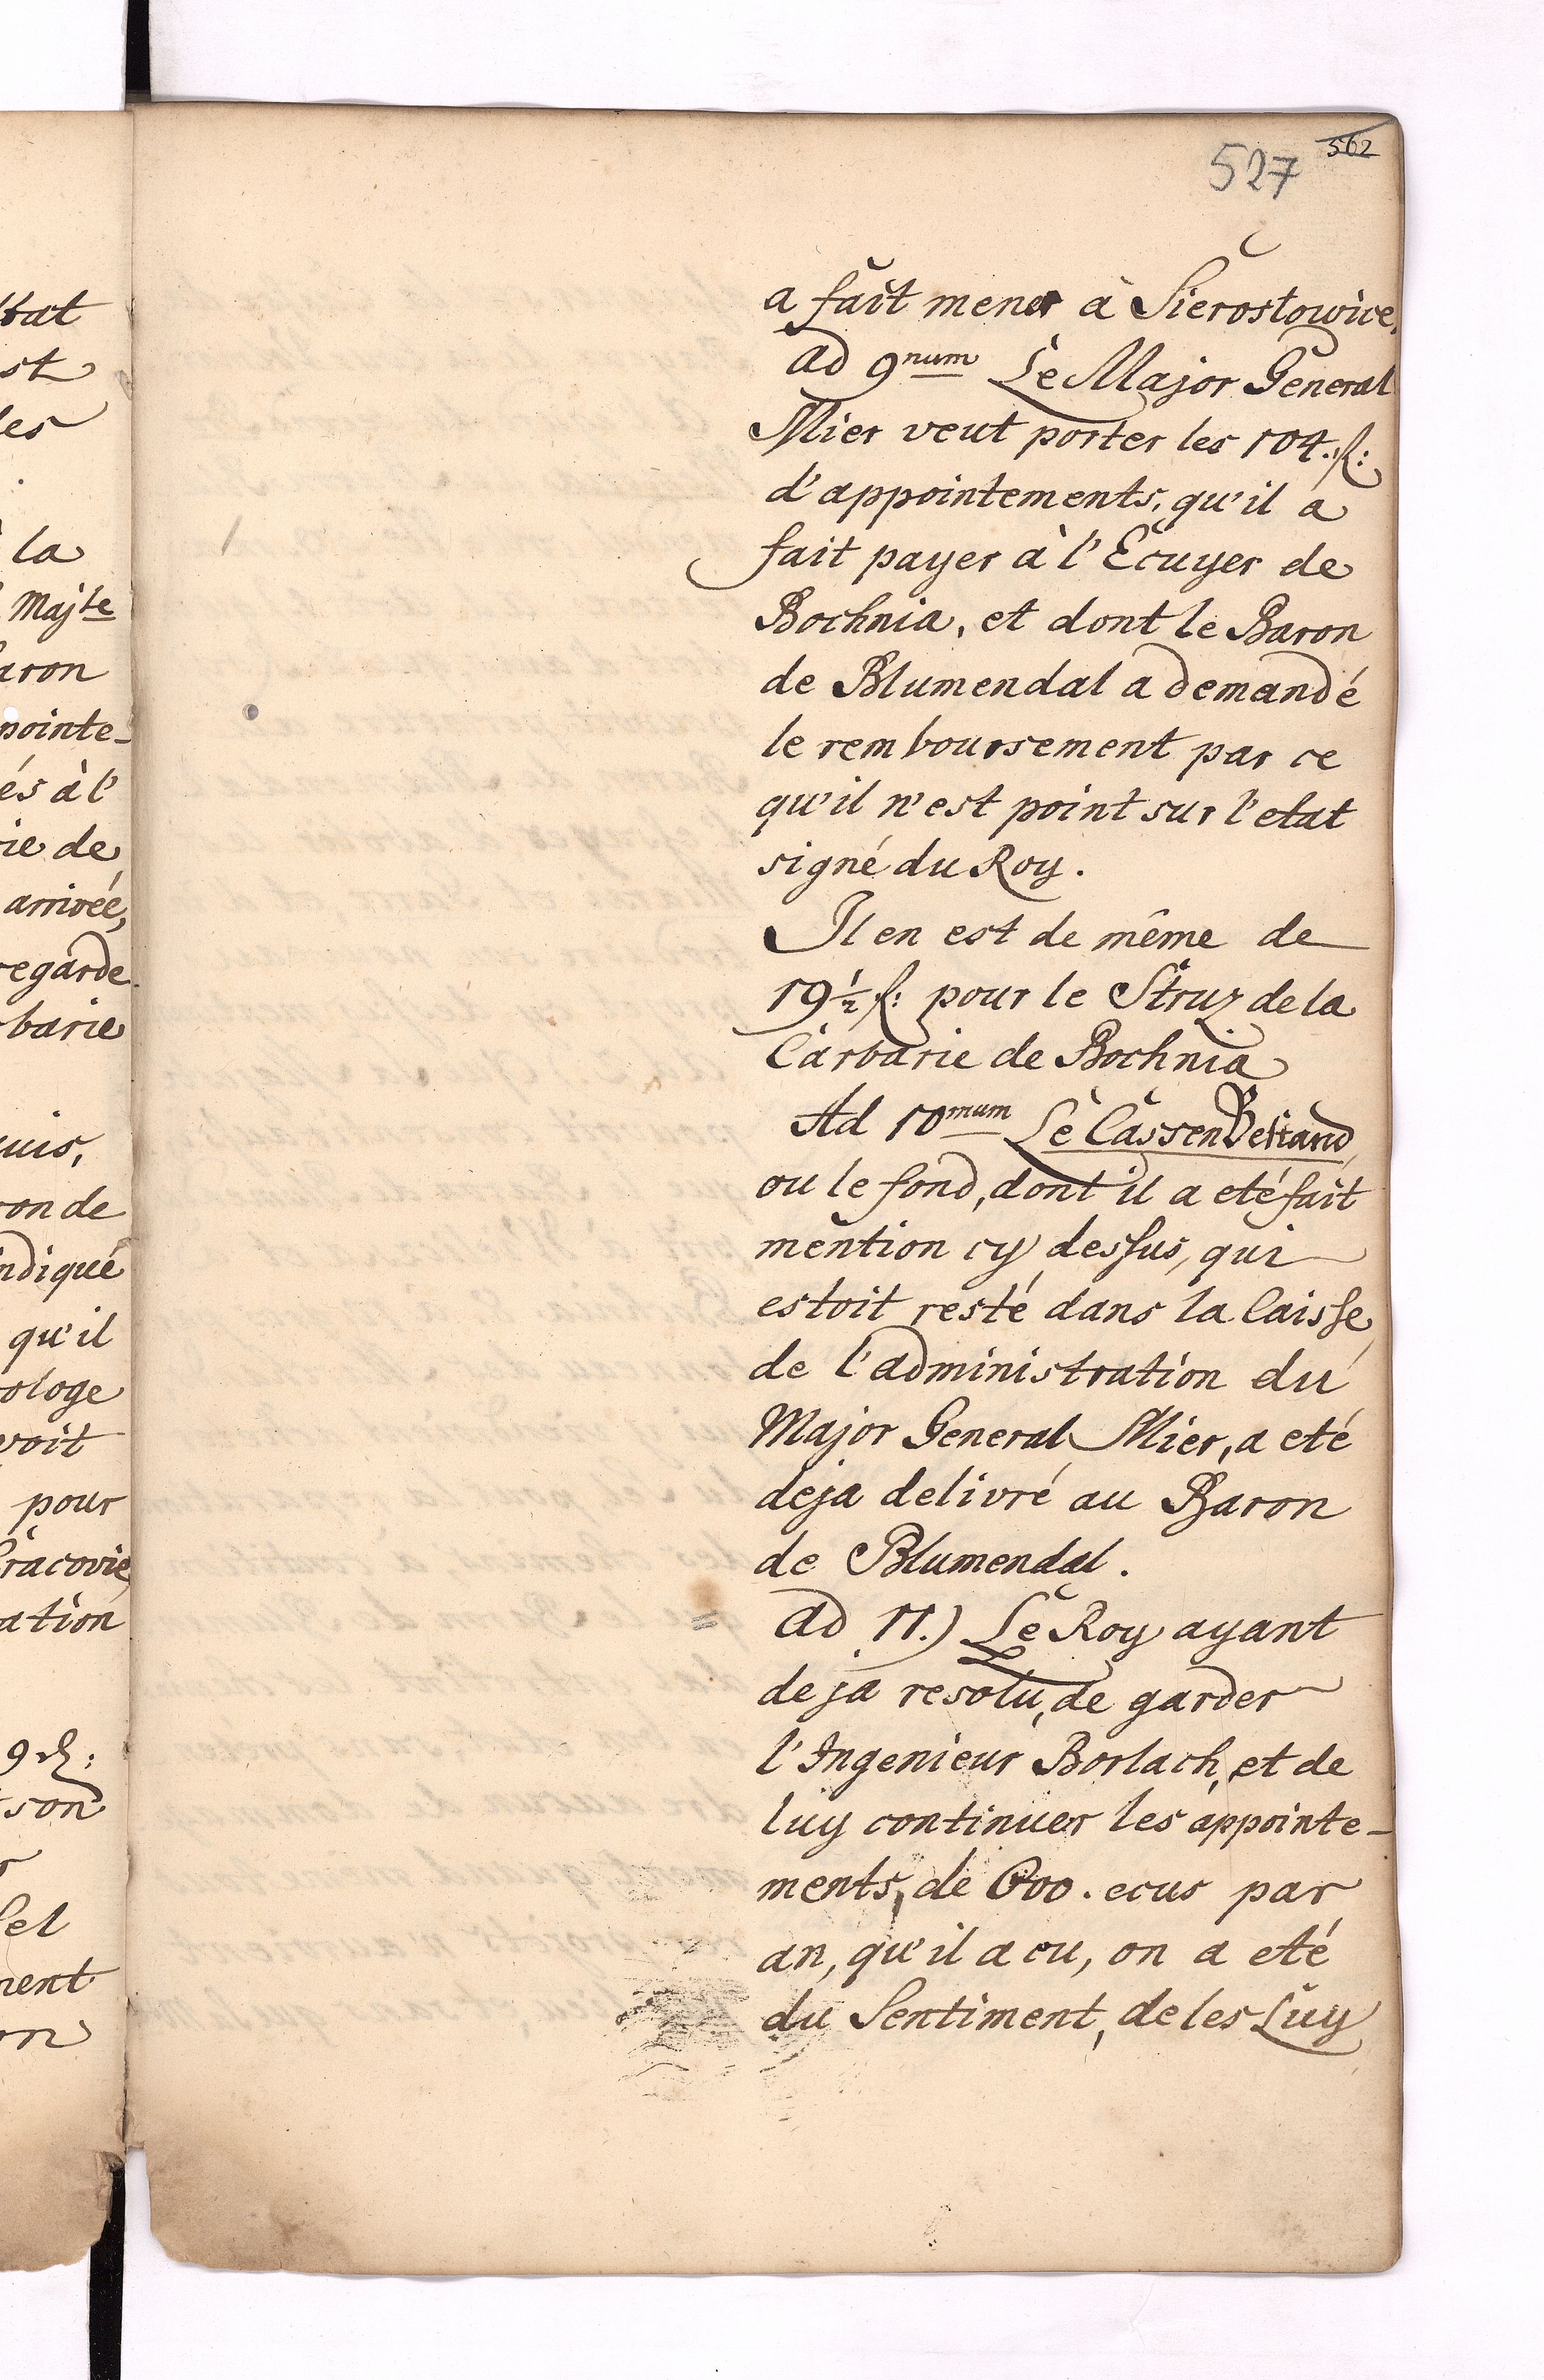 527 562
a fait mener à Sierostowice.
ad 9num Le Major General
Mier veut porter les 104. f:
d'appointements, qu'il a
fait payer à l'Ecuyer de
Bochnia, et dont le Baron
de Blumendal a demandé
le remboursement par ce
qu'il n'est point sur l'etat
signé du Roy.
Il en est de même de
19½ f: pour le Struz de la
Carbarie de Bochnia
Ad 10mum Le Cassen Bestand,
ou le fond, dont il a eté fait
mention cy dessus, qui
estoit resté dans la Caisse
de l'administration du
Major General Mier, a eté
deja delivré au Baron
de Blumendal.
ad 11.) Le Roy ayant
deja resolu, de garder
l'Ingenieur Borlach, et de
luy continuer les appointe-
ments, de 600. ecus par
an, qu'il a eu, on a eté
du Sentiment, de les Luy